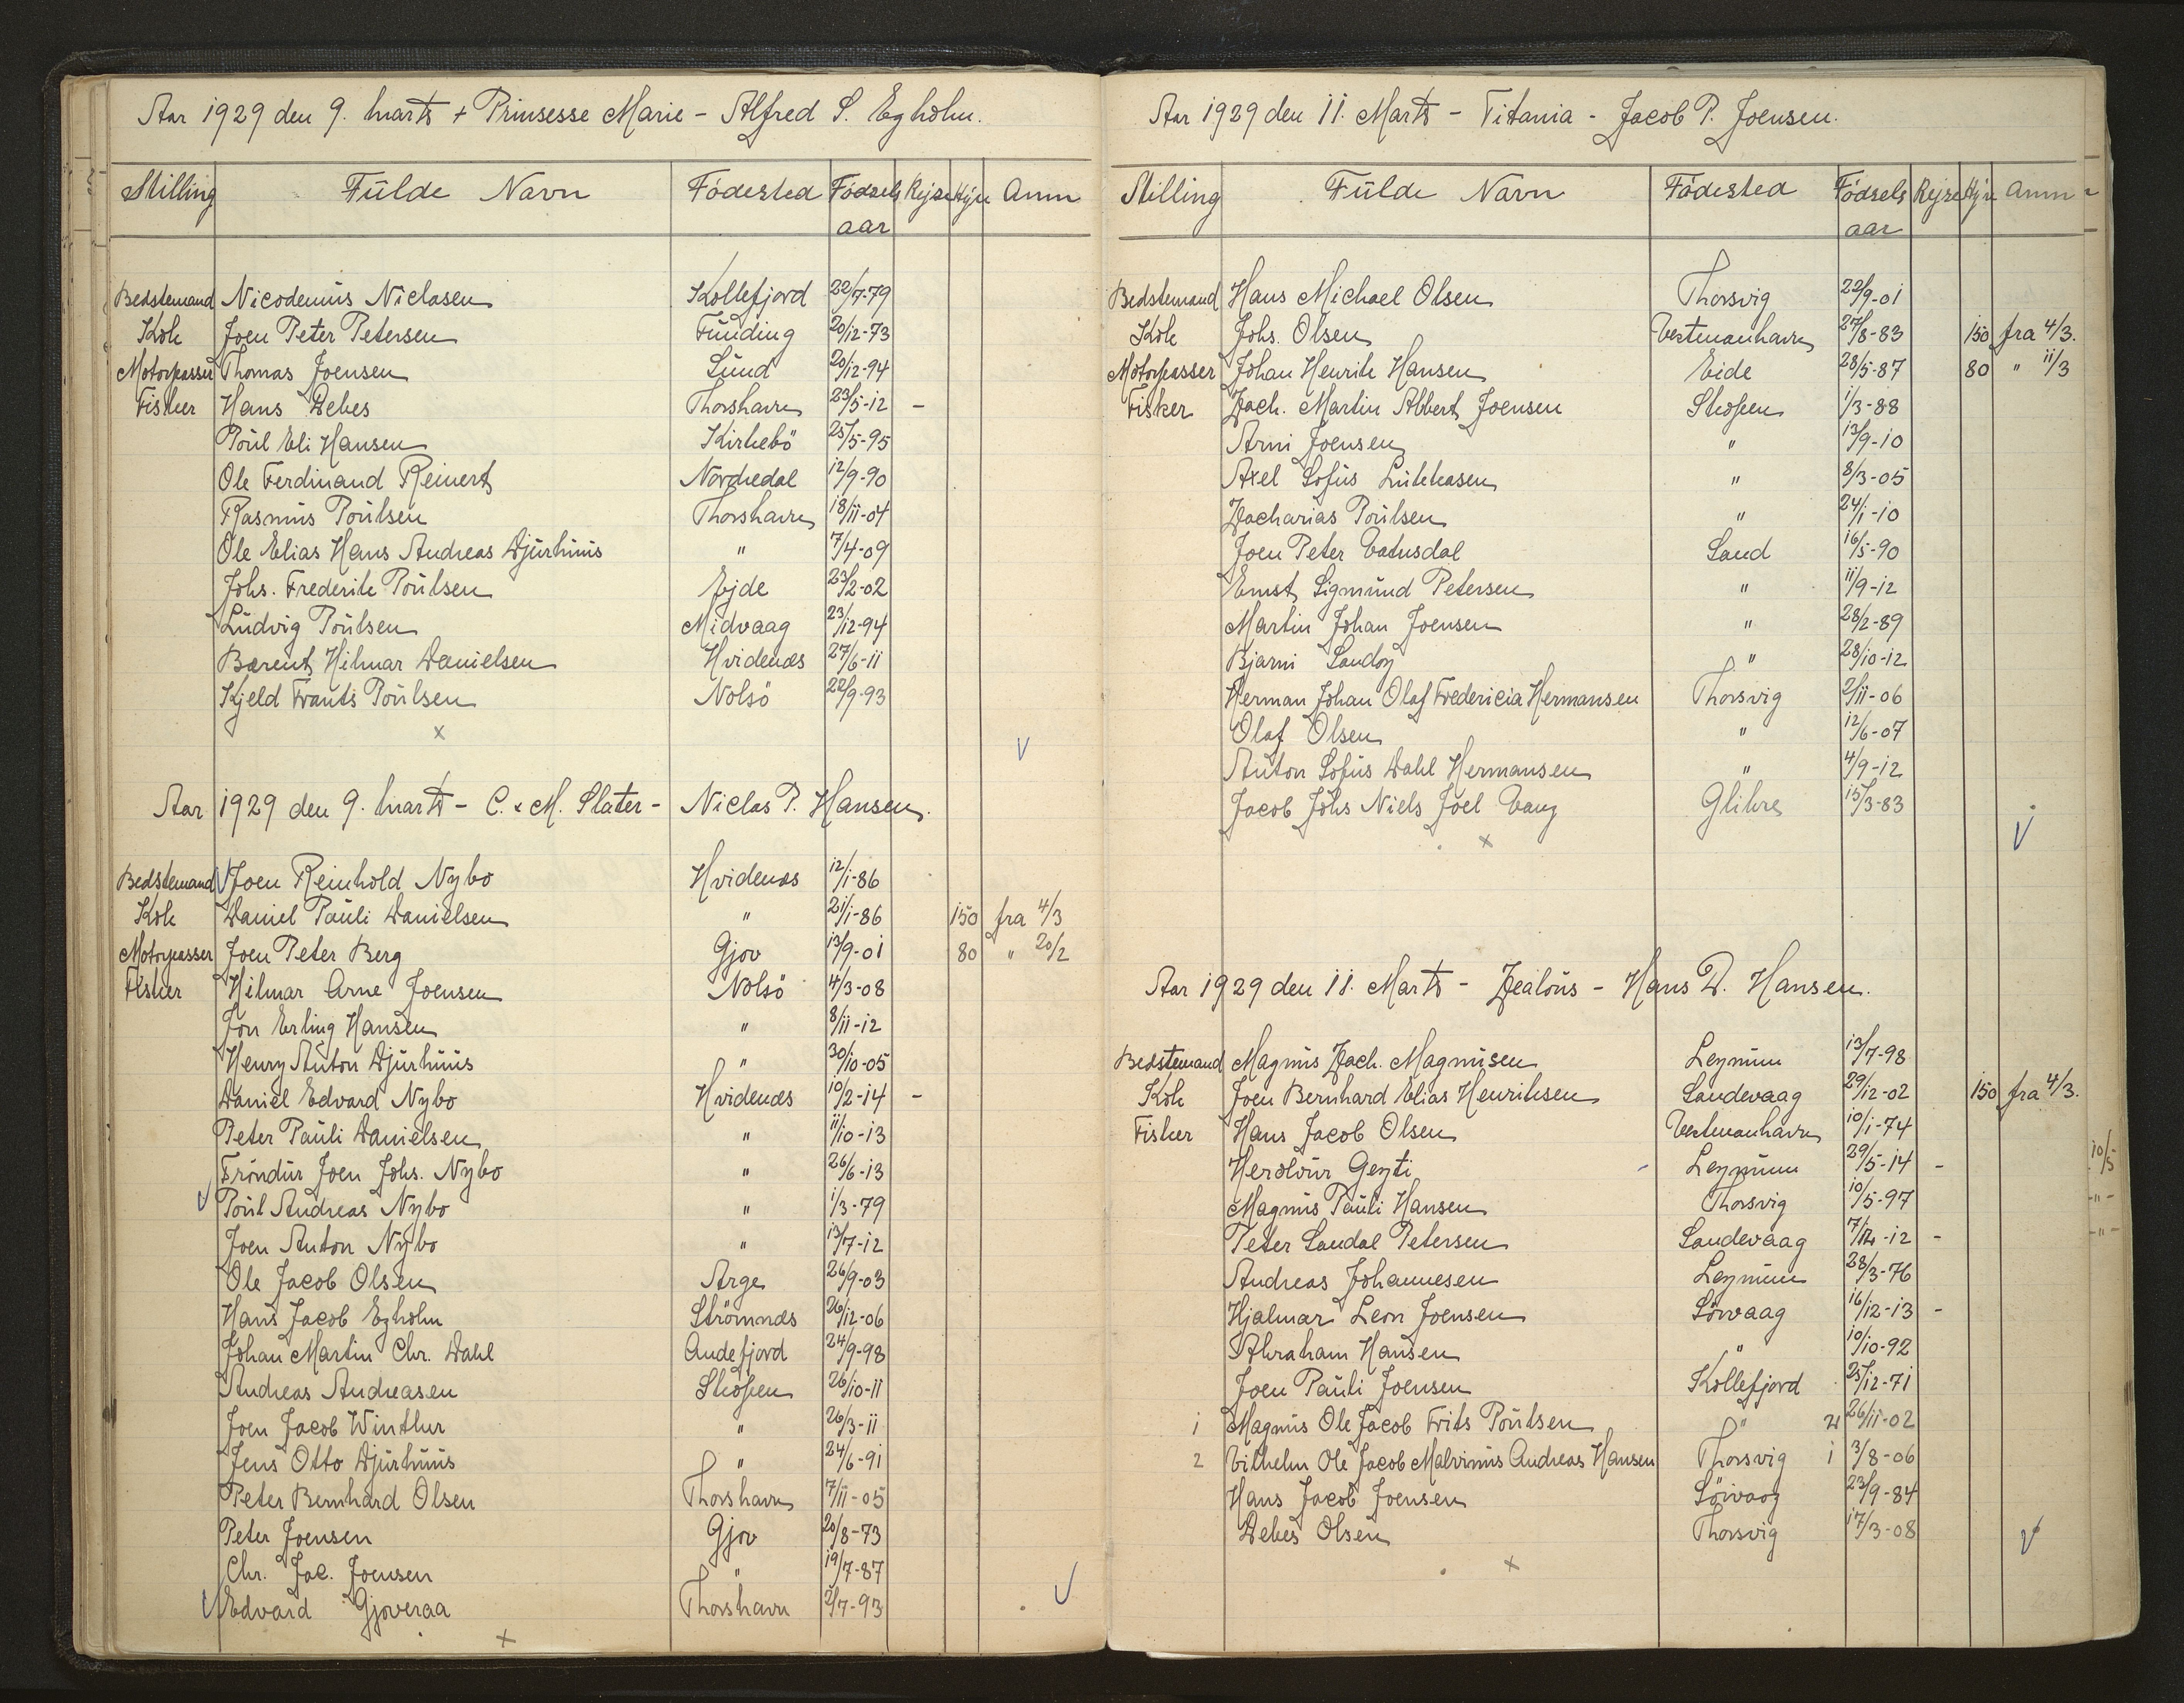 Aar 1929 den 9. marts + Prinsesse Marie - Alfred S. Egholm.
Stilling Fulde Navn Födested Födsels aar Rejse Hyre Anm
Bedstemand Nicodemus Niclasen Kollefjord 22/7-79
Kok Joen Peter Petersen Funding 20/12-73
Motorpasser Thomas Joensen Sund 20/12-94
Fisker Hans Debes Thorshavn 23/5-12 -
Poul Eli Hansen Kirkebö 25/5-95
Ole Ferdinand Reinert Nordredal 12/9-90
Rasmus Poulsen Thorshavn 18/11-04
Ole Elias Hans Andreas Djurhuus " 17/4-09
Johs. Frederik Poulsen Ejde 23/2-02
Ludvig Poulsen Midvaag 23/12-94
Barent Hilmar Danielsen Hvidenæs 27/6-11
Kjeld Frants Poulsen Nolsö 22/9-93
x
Aar 1929 den 9. marts - C. & M. Slater - Niclas P. Hansen.
Bedstemand Joen Reinhold Nybo Hvidenæs 12/1-86
Kok Daniel Pauli Danielsen " 21/1-86 150 fra 4/3
Motorpasser Joen Peter Berg Gjov 13/9-01 80 " 20/2
Fisker Hilmar Arne Joensen Nolsö 4/3-08
Jon Erling Hansen " 8/11-12
Henry Anton Djurhuus " 30/10-05
Daniel Edvard Nybo Hvidenæs 10/2-14 -
Peter Pauli Danielsen " 11/10-13
Tróndur Joen Johs. Nybo " 26/6-13
Poul Andreas Nybo " 1/3-79
Joen Anton Nybo " 13/7-12
Ole Jacob Olsen Arge 26/9-03
Hans Jacob Egholm Strömnæs 26/12-06
Johan Martin Chr. Dahl Andefjord 24/9-98
Andreas Andreasen Skopen 26/10-11
Joen Jacob Winther " 26/3-11
Jens Otto Djurhuus " 24/6-91
Peter Bernhard Olsen Thorshavn 7/11-05
Peter Joensen Gjov 20/8-73
Chr. Jac. Joensen " 19/7-87
Edvard Gjoveraa Thorshavn 2/7-93
x
Aar 1929 den 11. Marts - Titania - Jacob P. Joensen.
Stilling Fulde Navn Födested Födsels aar Rejse Hyre Anm
Bedstemand Hans Michael Olsen Thorsvig 22/9-01
Kok Johs. Olsen Vestmanhavn 27/8-83 150 fra 4/3.
Motorpasser Johan Henrik Hansen Eide 28/5-87 80 " 11/3
Fisker Zach. Martin Albert Joensen Skopen 1/3-88
Arni Joensen " 13/9-10
Axel Sofus Lukkasen " 8/3-05
Zacharias Poulsen " 24/1-10
Joen Peter Vatnsdal Sand 16/5-90
Ernst Sigmund Petersen " 11/9-12
Martin Johan Joensen " 28/2-89
Bjarni Sandoy " 28/10-12
Herman Johan Olaf Fredericia Hermansen Thorsvig 2/11-06
Olaf Olsen " 12/6-07
Anton Sofus Dahl Hermansen " 4/9-12
Jacob Johs Niels Joel Vang Glibre 15/3-83
x
Aar 1929 den 11. Marts - Zealous - Hans D. Hansen.
Bedstemand Magnus Zach. Magnusen Leynum 13/7-98
Kok Joen Bernhard Elias Henriksen Sandevaag 29/12-02 150 fra 4/3.
Fisker Hans Jacob Olsen Vestmanhavn 10/1-74
Herálvur Geyti Leynum 29/5-14 - 10/5
Magnus Pauli Hansen Thorsvig 10/5-97 -"-
Peter Sandal Petersen Sandevaag 7/12-12 - -"-
Andreas Johannesen Leynum 28/3-76
Hjalmar Leon Joensen Sörvaag 16/12-13 -
Abraham Hansen " 10/10-92
Joen Pauli Joensen Kollefjord 25/12-71
1 Magnus Ole Jacob Frits Poulsen " 2 26/11-02
2 Vilhelm Ole Jacob Malvinus Andreas Hansen Thorsvig 1 3/8-06
Hans Jacob Joensen Sörvaag 23/9-84
Debes Olsen Thorsvig 17/3-08
x